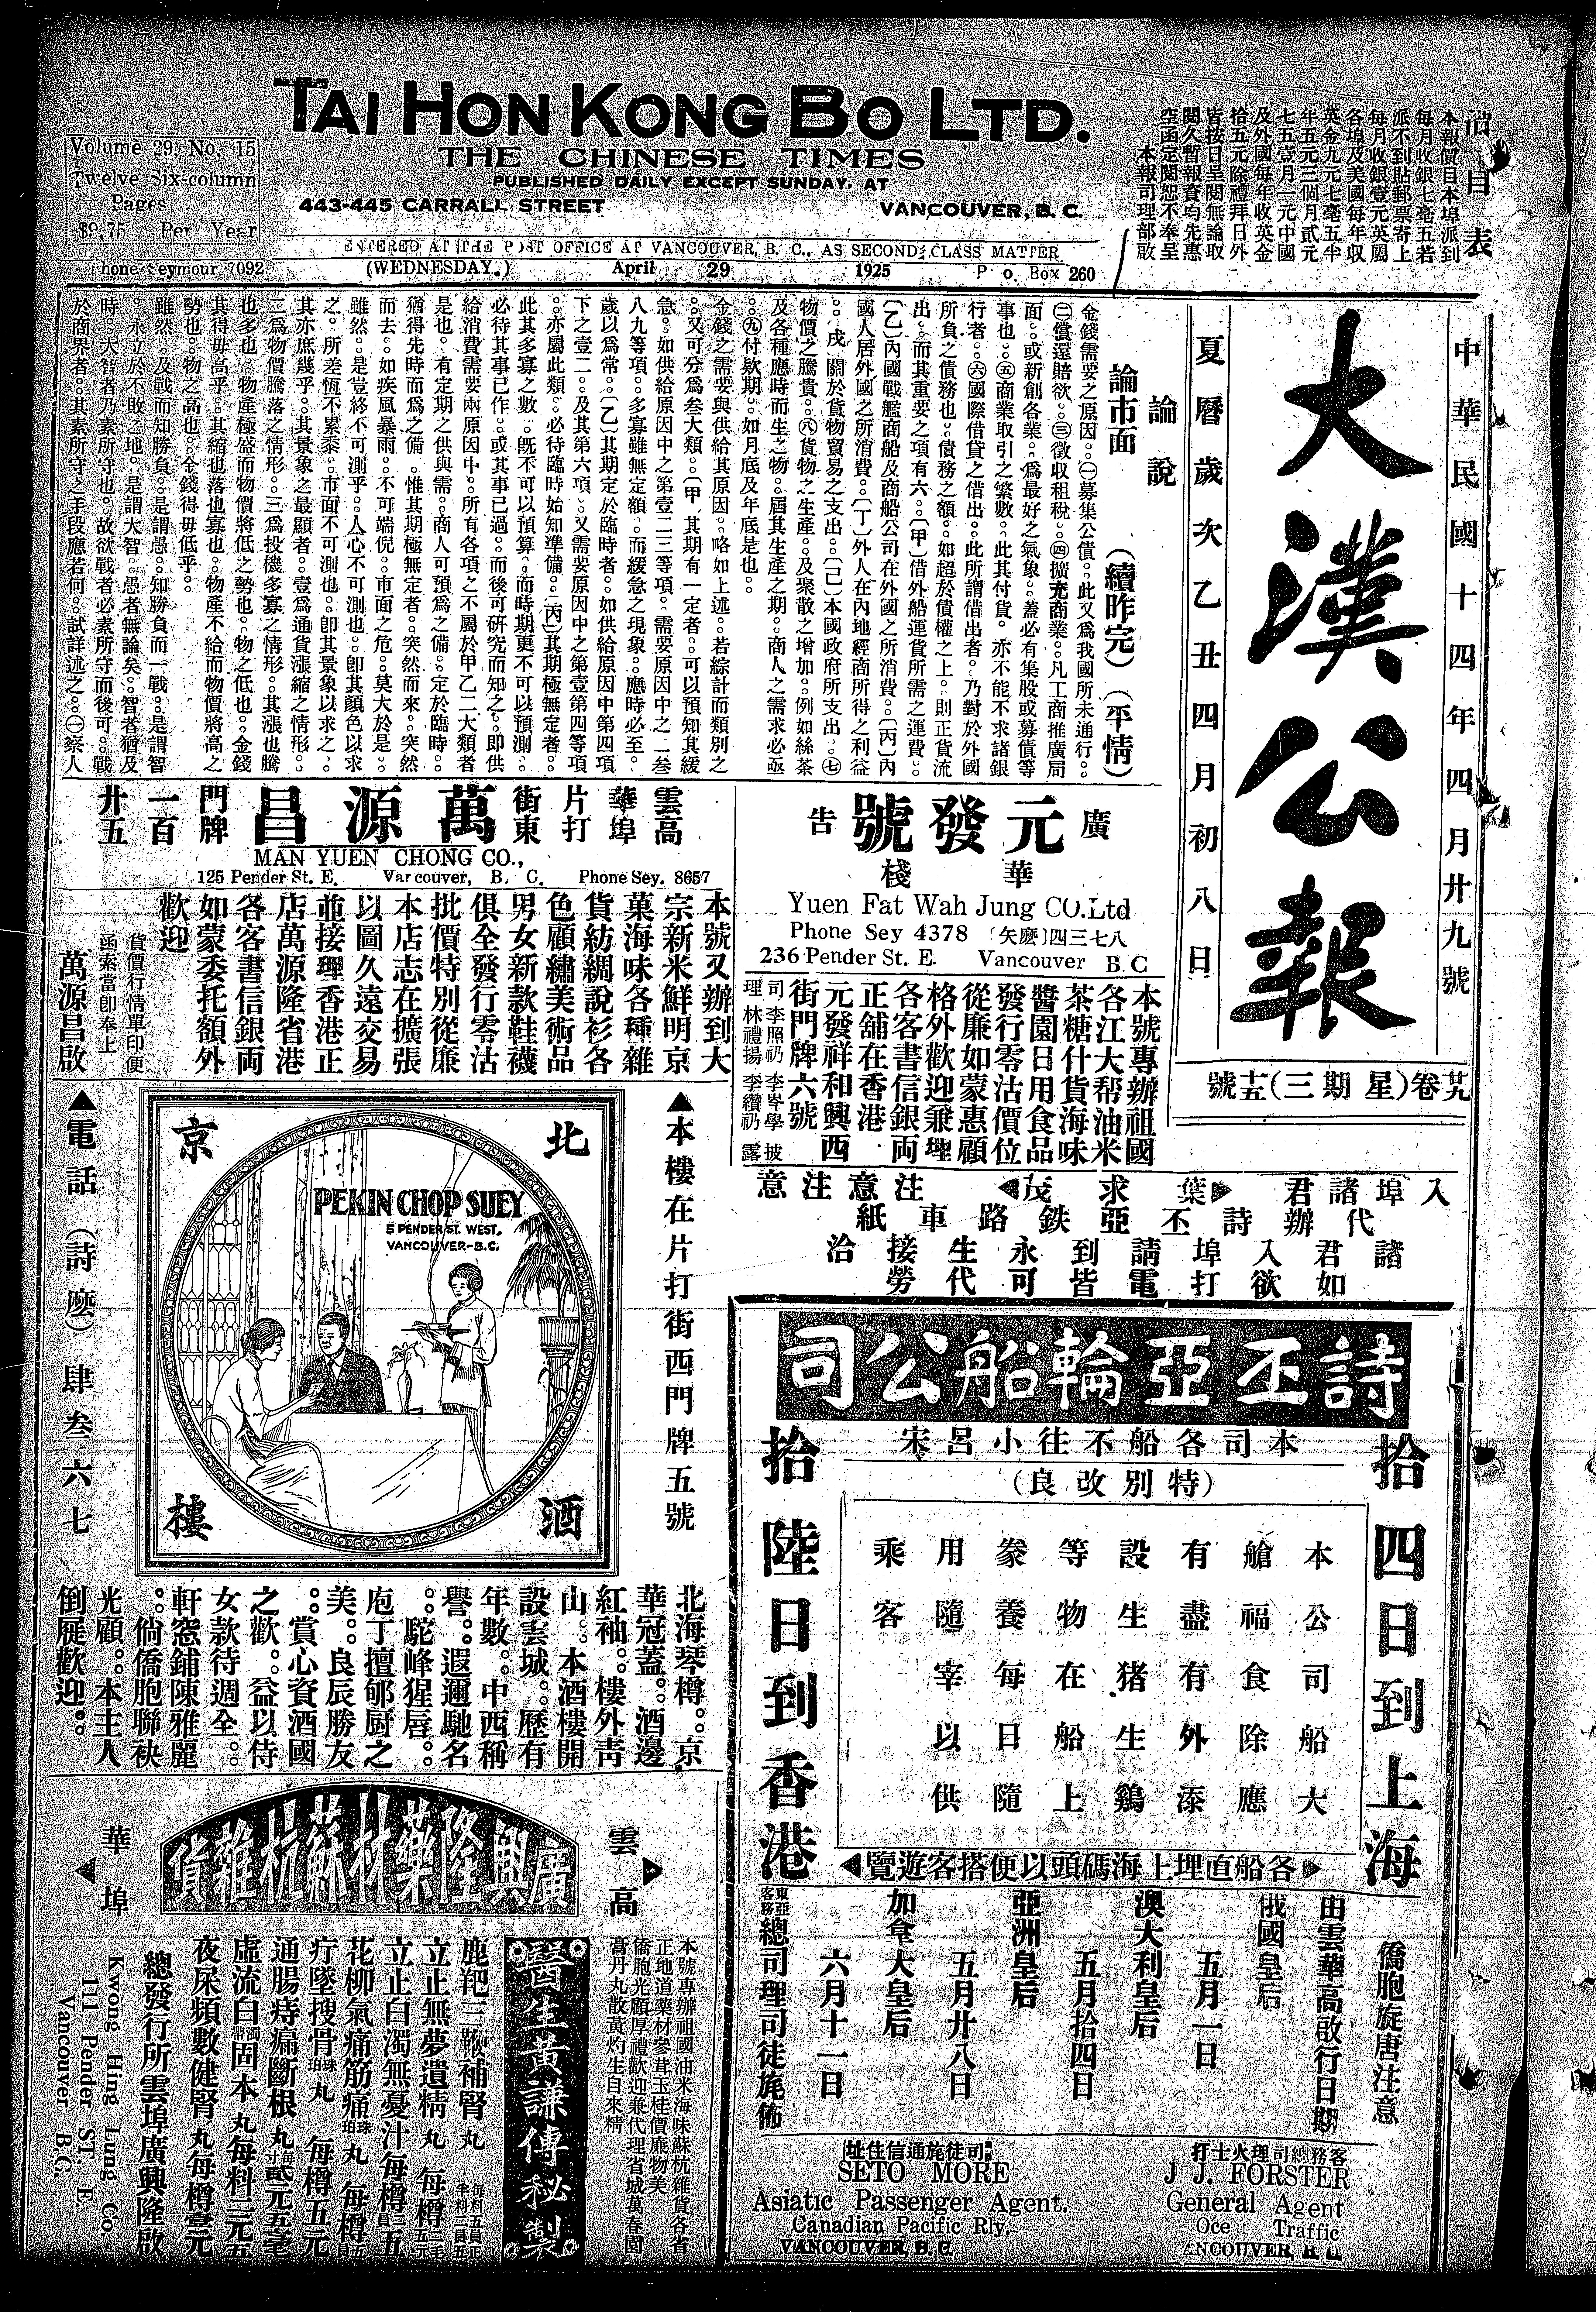 TAI HON KONG BO LTD.
THE CHINESE TIMES
PUBLISHED DAILY EXCEPT SUNDAY, AT
443-445 CARRALL STREET VANCOUVER, B. C.
ENTERED AT THE POST OFFICE AT VANCOUVER, B. C., AS SECOND CLASS MATTER
Volume 29, No. 15
Twelve Six-column
Pages
$9.75 Per Year
Phone Seymour 7092
(WEDNESDAY.) April 29 1925 P. o. Box 260
價目表
本報價目本埠派到
每月收銀七毫五若
派不到貼郵票寄上
每月收銀壹元英屬
各埠及美國每年收
英金九元七毫五半
年五元三個月貳元
七五壹月一元中國
及外國每年收英金
拾五元除禮拜日外
皆按日呈閱無論取
閱久暫報資均先惠
空函定閱恕不奉呈
本報司理部啟
中華民國十四年四月廿九號
大漢公報
夏曆歲次乙丑四月初八日
廿九卷(星期三)十五號
論說
論市面 (續昨完) (平情)
金錢需要之原因。㊀募集公債。此又為我國所未通行。
㊁償還賠欵。㊂徵收租税。㊃擴充商業。凡工商推廣局
面。或新創各業。為最好之氣象。蓋必有集股或募債等
事也。㊄商業取引之繁數。此其付貨。亦不能不求諸銀
行者。㊅國際借貸之借出。此所謂借出者。乃對於外國
所負之債務也。債務之額。如超於債權之上。則正貨流
出。而其重要之項有六。〔甲〕借外船運貨所需之運費。
〔乙〕內國戰艦商船及商船公司在外國之所消費。〔丙〕內
國人居外國之所消費。〔丁〕外人在內地經商所得之利益
。〔戊〕關於貨物貿易之支出。〔己〕本國政府所支出。㊆
物價之騰貴。㊇貨物之生產。及聚散之增加。例如絲茶
及各種應時而生之物。屆其生產之期。商人之需求必亟
。㊈付欵期。如月底及年底是也。
金錢之需要與供給其原因。略如上述。若綜計而類別之
。又可分為叁大類。〔甲〕其期有一定者。可以預知其緩
急。如供給原因中之第壹二三等項。需要原因中之一叁
八九等項。多寡雖無定額。而緩急之現象。應時必至。
歲以為常。〔乙〕其期定於臨時者。如供給原因中第四項
下之壹二。及其第六項。又需要原因中之第壹第四等項
。亦屬此類。必待臨時始知準備。〔丙〕其期極無定者。
此其多寡之數。既不可以預算。而時期更不可以預測。
必待其事已作。或其事已過。而後可研究而知之。即供
給消費需要兩原因中。所有各項之不屬於甲乙二大類者
是也。有定期之供與需。商人可預為之備。定於臨時。
猶得先時而為之備。惟其期極無定者。突然而來。突然
而去。如疾風暴雨。不可端倪。市面之危。莫大於是。
雖然。是豈終不可測乎。人心不可測也。卽其顏色以求
之。所差恆不累黍。市面不可測也。卽其景象以求之。
其亦庶幾乎。其景象之最顯者。壹為通貨漲縮之情形。
二為物價騰落之情形。三為投機多寡之情形。其漲也騰
也多也。物產極盛而物價將低之勢也。物之低也。金錢
其得毋高乎。其縮也落也寡也。物產不給而物價將高之
勢也。物之高也。金錢得毋低乎。
雖然。及戰而知勝負。是謂愚。知勝負而一戰。是謂智
。永立於不敗之地。是謂大智。愚者無論矣。智者猶及
時。大智者乃素所守也。故欲戰者必素所守而後可。戰
於商界者。其素所守之手段應若何。試詳述之。㊀察人
雲高華埠片打街東
萬源昌
門牌一百廿五
MAN YUEN CHONG CO.,
125 Pender St. E. Vancouver, B. C. Phone Sey. 8657
本號又辦到大
宗新米鮮明京
菓海味各種雜
貨紡綢説衫各
色顧繡美術品
男女新款鞋襪
俱全發行零沽
批價特別從廉
本店志在擴張
以圖久遠交易
並接理香港正
店萬源隆省港
各客書信銀両
如蒙委托額外
歡迎
貨價行情單印便
函索當卽奉上
萬源昌啟
廣告
元發號
華棧
Yuen Fat Wah Jung CO.Ltd
Phone Sey 4378 〔矢麼〕四三七八
236 Pender St. E. Vancouver B.C
本號專辦祖國
各江大帮油米
茶糖什貨海味
醬園日用食品
發行零沽價位
從廉如蒙惠顧
格外歡迎兼理
各客書信銀両
正舖在香港
元發祥和興西
街門牌六號
司 李照礽 李岑學 披
理 林禮揚 李纘礽 露
入埠諸君 葉求茂 注意注意
代辦詩丕亞鉄路車紙
諸君入埠請到永生接洽
如欲打電皆可代勞
▲本樓在片打街西門牌五號
北京酒樓
PEKIN CHOP SUEY
5 PENDER ST. WEST,
VANCOUVER-B.C.
▲電話(詩麼)肆叁六七
北海琴樽。京
華冠蓋。酒邊
紅袖。樓外青
山。本酒樓開
設雲城。歷有
年數。中西稱
譽。遐邇馳名
。駝峰猩唇。
庖丁擅郇厨之
美。良辰勝友
。賞心資酒國
之歡。益以侍
女款待週全。
軒窓鋪陳雅麗
。倘僑胞聯袂
光顧。本主人
倒屣歡迎。
詩丕亞輪船公司
本司各船不往小呂宋
(特別改良)
拾四日到上海
拾陸日到香港
本公司船大
艙福食除應
有盡有外添
設生猪生鷄
等物在船上
豢養每日隨
用隨宰以供
乘客
各船直埋上海碼頭以便搭客遊覽
僑胞旋唐注意
由雲華高啟行日期
俄國皇后 五月一日
澳大利皇后 五月拾四日
亞洲皇后 五月廿八日
加拿大皇后 六月十一日
東亞客務總司理司徒旄佈
客務總司理火士打
J. J. FORSTER
General Agent
Traffic
VANCOUVER, B. C.
司徒旄通信住址
SETO MORE
Asiatic Passenger Agent.
Canadian Pacific Rly.
VANCOUVER, B. C.
雲高華埠
廣興隆藥材蘇杭雜貨
本號專辦祖國油米海味蘇杭雜貨各省
正地道藥材參茸玉桂價廉物美
僑胞光顧厚禮歡迎兼代理省城萬春園
膏丹丸散黃灼生自來精
醫生黃謙傳秘製
鹿羓三鞭補腎丸
立止無夢遺精丸 每樽
立止白濁無憂汁每樽
花柳氣痛筋痛丸 每樽
疔墜搜骨丸 每樽五元
通腸痔痛斷根丸
虛流白固本丸每料三元五
夜尿頻數健腎丸每樽壹元
總發行所雲埠廣興隆啟
Kwong Hing Lung Co
111 Pender ST. E.
Vancouver B.C.